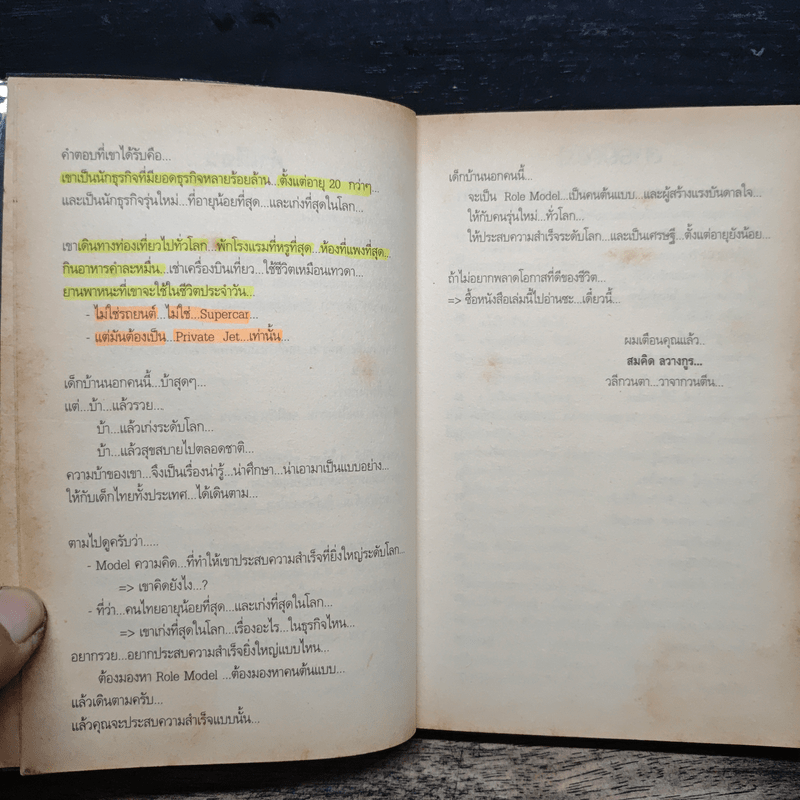 คำตอบที่เขาได้รับคือ...
เขาเป็นนักธุรกิจที่มียอดธุรกิจหลายร้อยล้าน...ตั้งแต่อายุ 20 กว่าๆ...
และเป็นนักธุรกิจรุ่นใหม่...ที่อายุน้อยที่สุด...และเก่งที่สุดในโลก...
เขาเดินทางท่องเที่ยวไปทั่วโลก...พักโรงแรมที่หรูที่สุด...ห้องที่แพงที่สุด...
กินอาหารคำละหมื่น...เช่าเครื่องบินเที่ยว...ใช้ชีวิตเหมือนเทวดา...
ยานพาหนะที่เขาจะใช้ในชีวิตประจำวัน...
- ไม่ใช่รถยนต์...ไม่ใช่...Supercar...
- แต่มันต้องเป็น...Private Jet...เท่านั้น...
เด็กบ้านนอกคนนี้...บ้าสุดๆ...
แต่...บ้า...แล้วรวย...
บ้า...แล้วเก่งระดับโลก...
บ้า...แล้วสุขสบายไปตลอดชาติ...
ความบ้าของเขา...จึงเป็นเรื่องน่ารู้...น่าศึกษา...น่าเอามาเป็นแบบอย่าง...
ให้กับเด็กไทยทั้งประเทศ...ได้เดินตาม...
ตามไปดูครับว่า.....
- Model ความคิด...ที่ทำให้เขาประสบความสำเร็จที่ยิ่งใหญ่ระดับโลก...
=> เขาคิดยังไง...?
- ที่ว่า...คนไทยอายุน้อยที่สุด...และเก่งที่สุดในโลก...
=> เขาเก่งที่สุดในโลก...เรื่องอะไร...ในธุรกิจไหน...
อยากรวย...อยากประสบความสำเร็จยิ่งใหญ่แบบไหน...
ต้องมองหา Role Model ...ต้องมองหาคนต้นแบบ...
แล้วเดินตามครับ...
แล้วคุณจะประสบความสำเร็จแบบนั้น...
เด็กบ้านนอกคนนี้...
จะเป็น Role Model...เป็นคนต้นแบบ...และผู้สร้างแรงบันดาลใจ...
ให้กับคนรุ่นใหม่...ทั่วโลก...
ให้ประสบความสำเร็จระดับโลก...และเป็นเศรษฐี...ตั้งแต่อายุยังน้อย...
ถ้าไม่อยากพลาดโอกาสที่ดีของชีวิต...
=> ซื้อหนังสือเล่มนี้ไปอ่านซะ...เดี๋ยวนี้...
ผมเตือนคุณแล้ว..
สมคิด ลวางกูร...
วลีกวนตา...วาจากวนตีน...